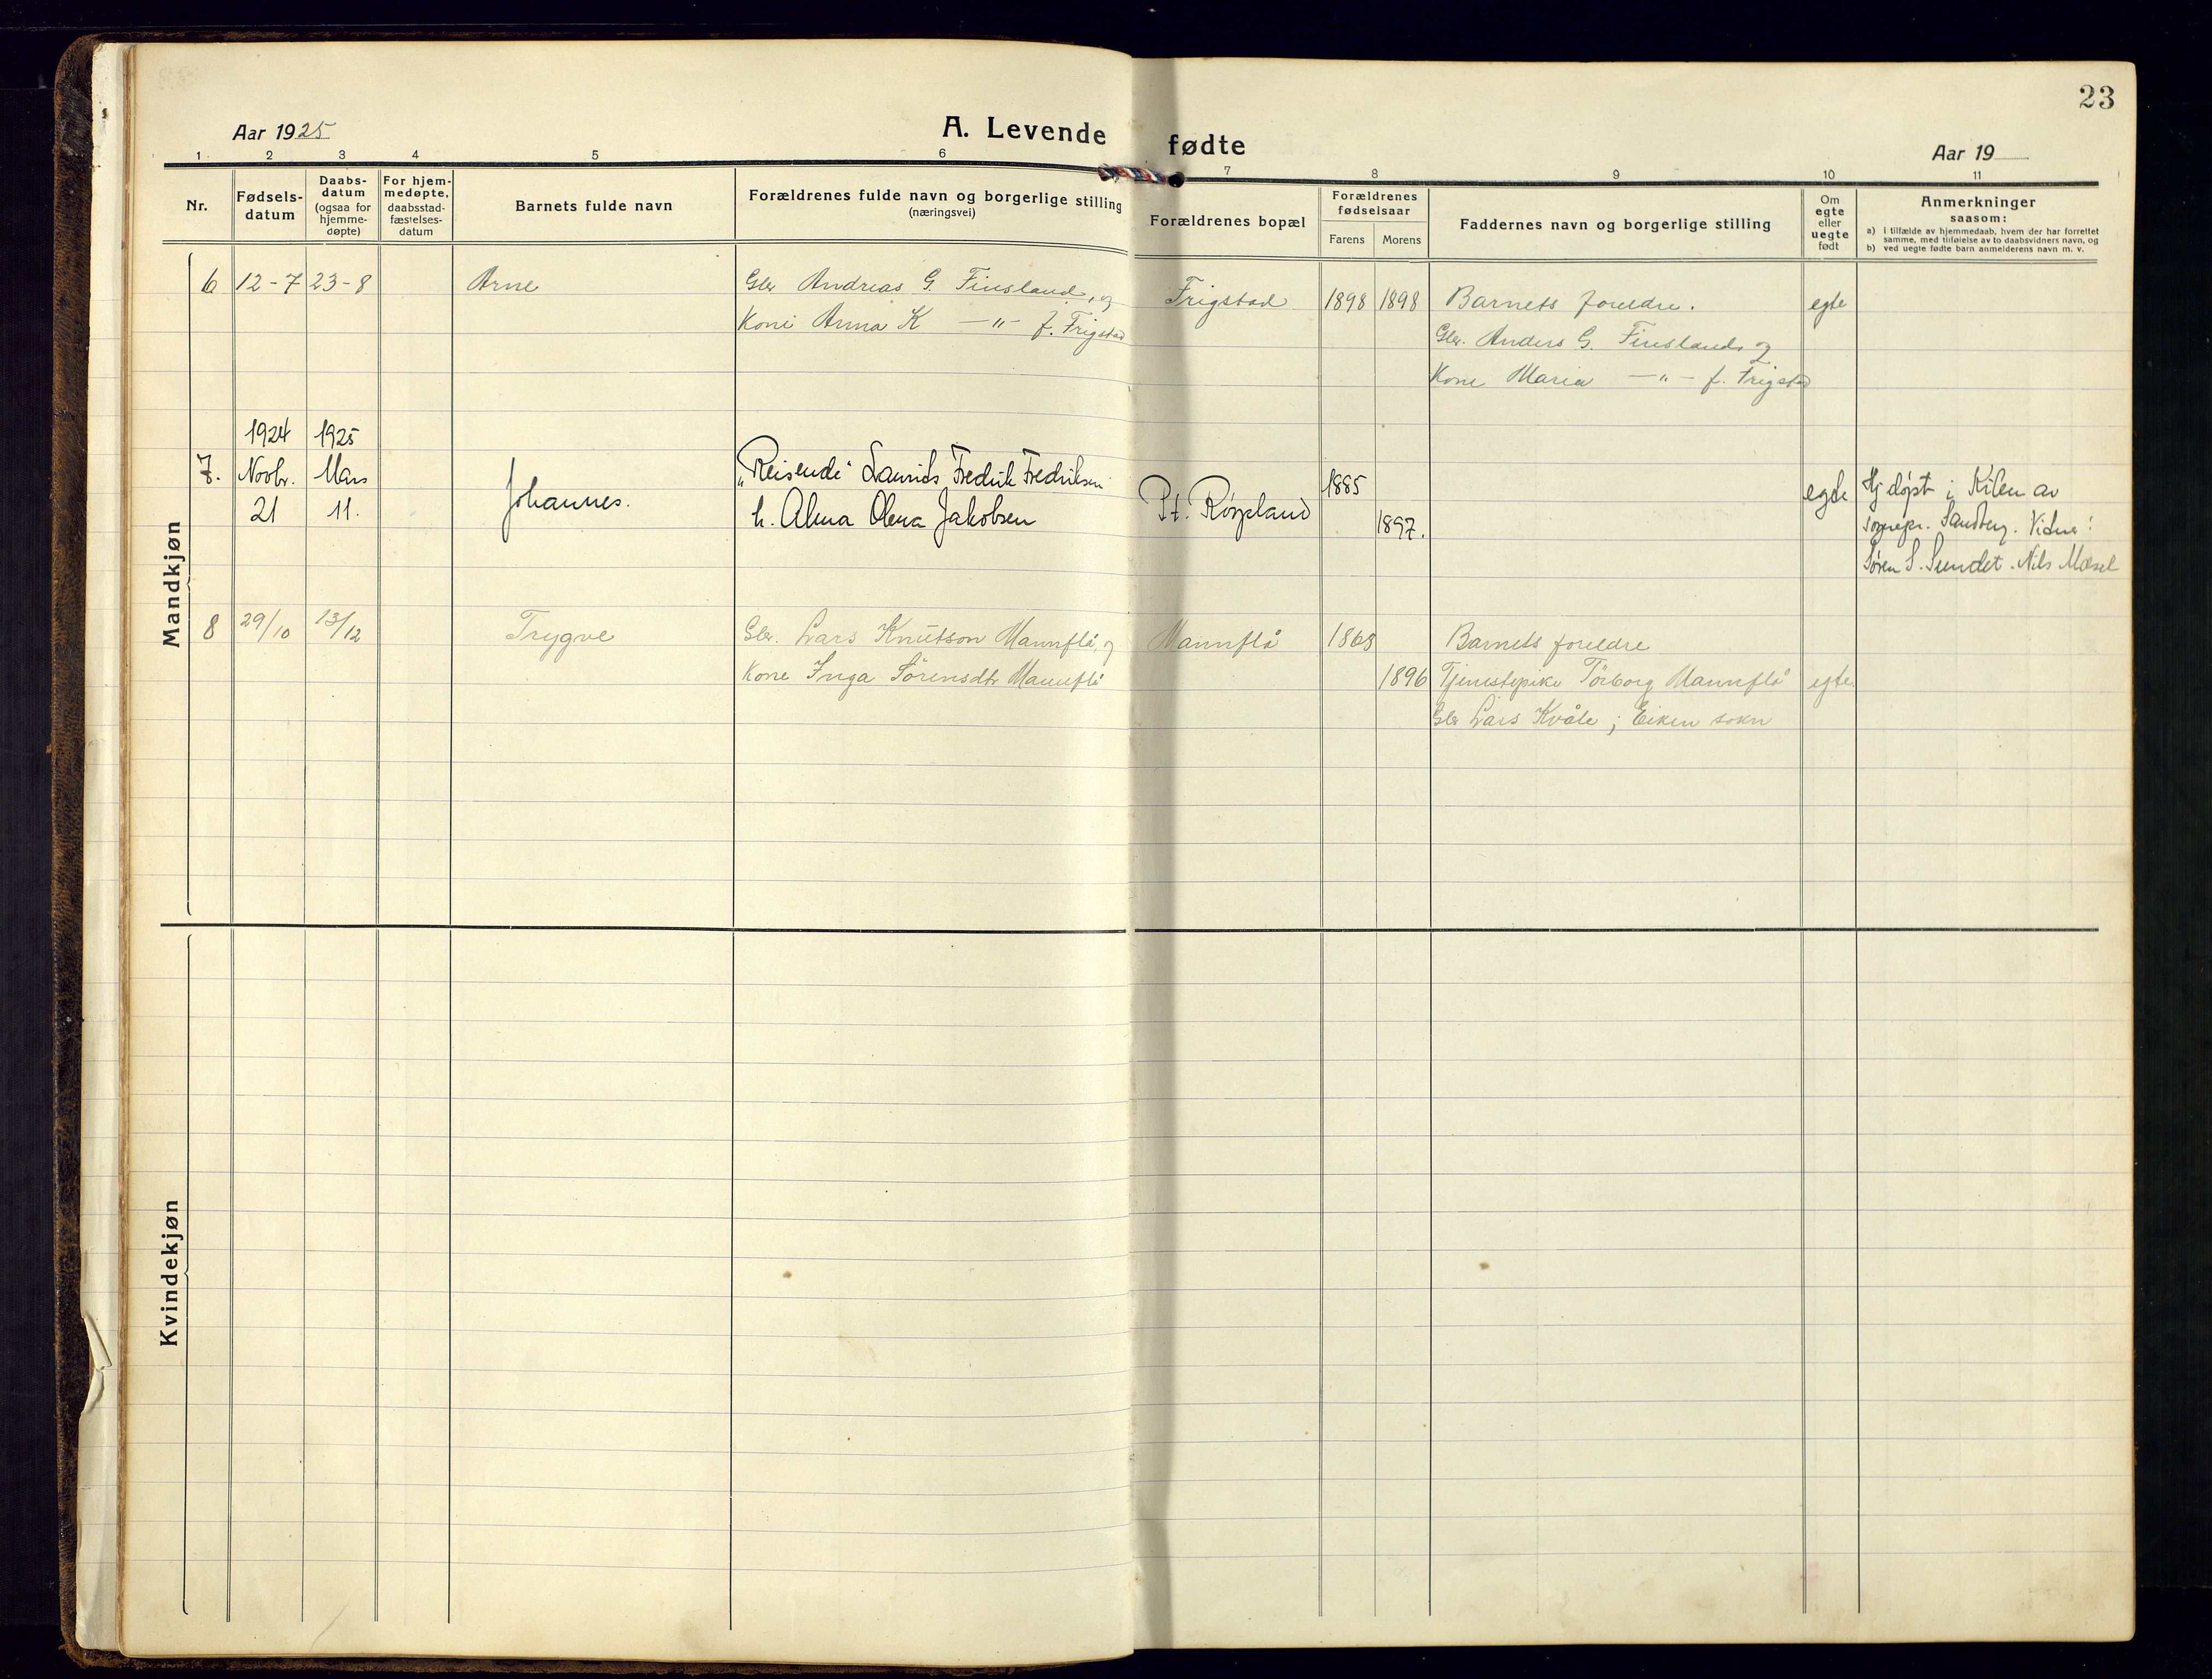 23
Aar 1925
A. Levende fødte
Aar 19
1 2 3 4 5 6 7 8 9 10 11
Nr.
Fødsels-
datum
Daabs-
datum
(ogsaa for
hjemme-
døpte)
For hjem-
medøpte,
daabsstad-
fæstelses-
datum
Barnets fulde navn
Forældrenes fulde navn og borgerlige stilling
(næringsvei)
Forældrenes bopæl
Forældrenes
fødselsaar
Farens Morens
Faddernes navn og borgerlige stilling
Om
egte
eller
uegte
født
Anmerkninger
saasom:
a) i tilfælde av hjemmedaab, hvem der har forrettet
samme, med tilføielse av to daabsvidners navn, og
b) ved uegte fødte barn anmelderens navn m. v.
Mandkjøn
6 12-7 23-8 Arne Gbr Andreas G. Finsland, og Frigstad 1898 1898 Barnets foreldre. egte
Kone Anna K —"— f. Frigstad
Gbr. Anders G. Finsland og
Kone Maria —"— f. Frigstad
1924 1925
7. Novbr. Mars
21 11.
Johannes.
"Reisende" Laurids Fredrik Fredriksen
h. Alma Olena Jakobsen
Pt. Røypland
1885
1897.
egte
Hj døpt i Kilen av
sognepr. Sandberg. Vidner:
Søren S. Sundet. Nils Mæsel
8 29/10 13/12 Trygve Gbr. Lars Knutson Mannflå, og Mannflå 1868 Barnets foreldre
Kone Inga Sörensdtr Mannflå 1896 Tjenestepike Torborg Mannflå egte.
Gbr Lars Kvåle; Eiken sokn
Kvindekjøn